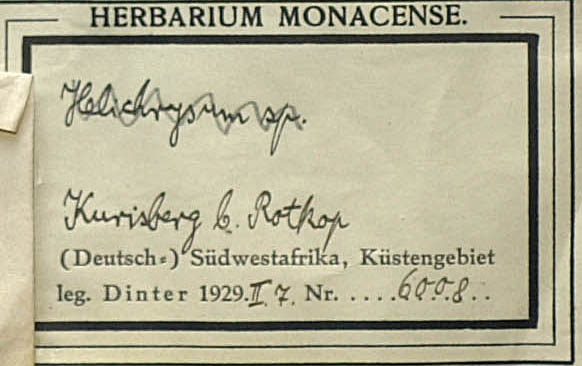 HERBARIUM MONACENSE.
Helichrysum sp.
Kurisberg b. Rotkop
(Deutsch=) Südwestafrika, Küstengebiet
leg. Dinter 1929. II. 7. Nr. ....6008..